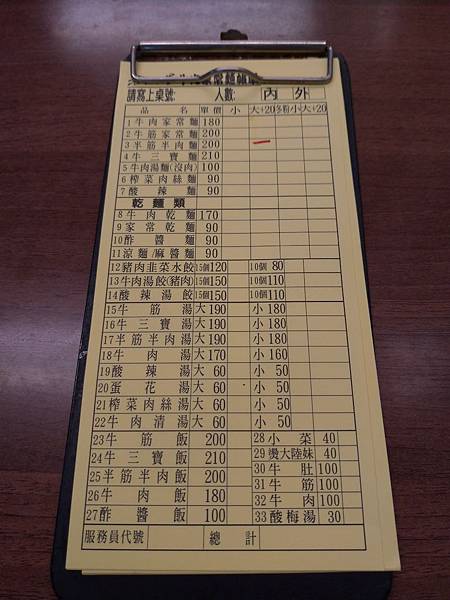 請寫上桌號: 人數: 內 外
品 名 單價 小 大+20 冬粉小 大+20
1牛肉家常麵 180
2牛筋家常麵 200
3半筋半肉麵 200
4牛三寶麵 210
5牛肉湯麵(沒肉) 100
6榨菜肉絲麵 90
7酸辣麵 90
乾麵類
8牛肉乾麵 170
9家常乾麵 90
10酢醬麵 90
11涼麵/麻醬麵 90
12豬肉韭菜水餃 15個120 10個 80
13牛肉湯餃(豬肉) 15個150 10個110
14酸辣湯餃 15個150 10個110
15牛筋湯 大190 小180
16牛三寶湯 大190 小180
17半筋半肉湯 大190 小180
18牛肉湯 大170 小160
19酸辣湯 大 60 小 50
20蛋花湯 大 60 小 50
21榨菜肉絲湯 大 60 小 50
22牛肉清湯 大 60 小 50
23牛筋飯 200 28小菜 40
24牛三寶飯 210 29燙大陸妹 40
25半筋半肉飯 200 30牛肚 100
26牛肉飯 180 31牛筋 100
27酢醬飯 100 32牛肉 100
33酸梅湯 30
服務員代號 總計